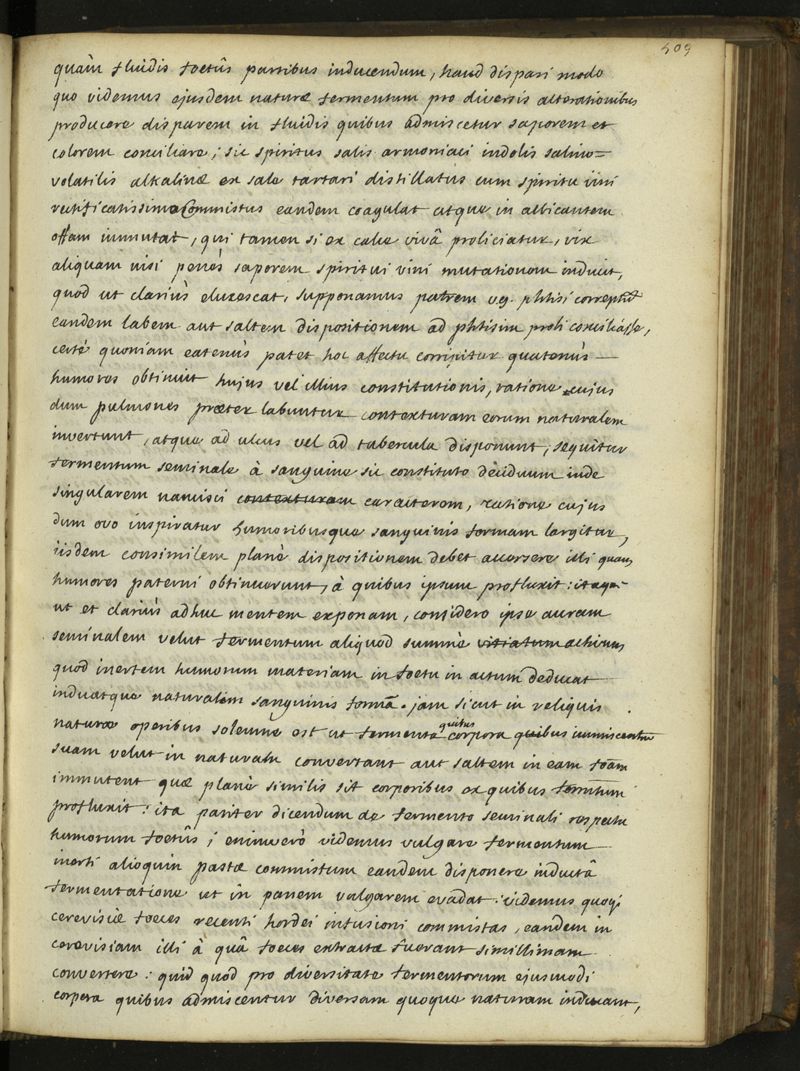 409
quàm fluidis foetûs partibus inducendum, haud dispari modo
quo videmus ejusdem naturæ fermentum pro diversis alterationibus
producere disparem in fluidis quibus admiscetur saporem et
colorem conciliare; sic spiritus salis armoniaci indolis salino=
volatilis alkalinæ ex sale tartari distillatus cum spiritu vini
rectificatissimo commistus eandem coagulat atque in albicantem
offam immutat, qui tamen si ex calce vivâ proliciatur, vix
aliquam nisi penes saporem spiritui vini mutationem inducit,
quod ut clariùs elucescat, supponamus patrem v.g. phtisi correptum
eandem labem aut saltem dispositionem ad phtisim proli conciliasse,
certè quoniam eatenùs patet hoc affectu corripitur quatenùs
humores obtinuit hujus vel illius constitutionis, ratione cujus
dum pulmones præter labuntur contexturam eorum naturalem
invertunt, atque ad ulcus vel ad tubercula disponunt, sequitur
fermentum seminale à sanguine sic constituto deciduum inde
singularem nancisci contexturam caracterem, ratione cujus
dum ovo inspiratur humoribusque sanguinis formam largitur,
iisdem consimilem planè dispositionem debet accersere illi quam
humores paterni obtinuerunt, à quibus ipsum profluxit:
ut et clariùs adhuc mentem exponam, considero ipse auram
seminalem velut fermentum aliquod summè vitiatum activum
quod inertem humorum materiam in foetu in actum deducat
induatque naturalem sanguinis formã. jam sicut in reliquis
naturæ operibus solemne est ut fermenta quibus corpora quibus immiscentur
suam velut in naturam convertant aut saltem in eam foãm
immutent quæ planè similis sit corporibus ex quibus fermtum
profluxit: ita pariter dicendum de fermento seminali respectu
humorum foetûs; enimverò videmus vulgare fermentum
inerti alioquin pastæ commistum eandem disponere inductâ
fermentatione ut in panem vulgarem evadat: videmus quoq;
cerevisiæ foeces recenti hordei infusioni commistas, eandem in
cerevisiam illi à quâ foeces extractæ fuerant simillimam
convertere: quid quod pro diversitate fermentorum ejusmodi
corpora quibus admiscentur diversam quoque naturam induant,